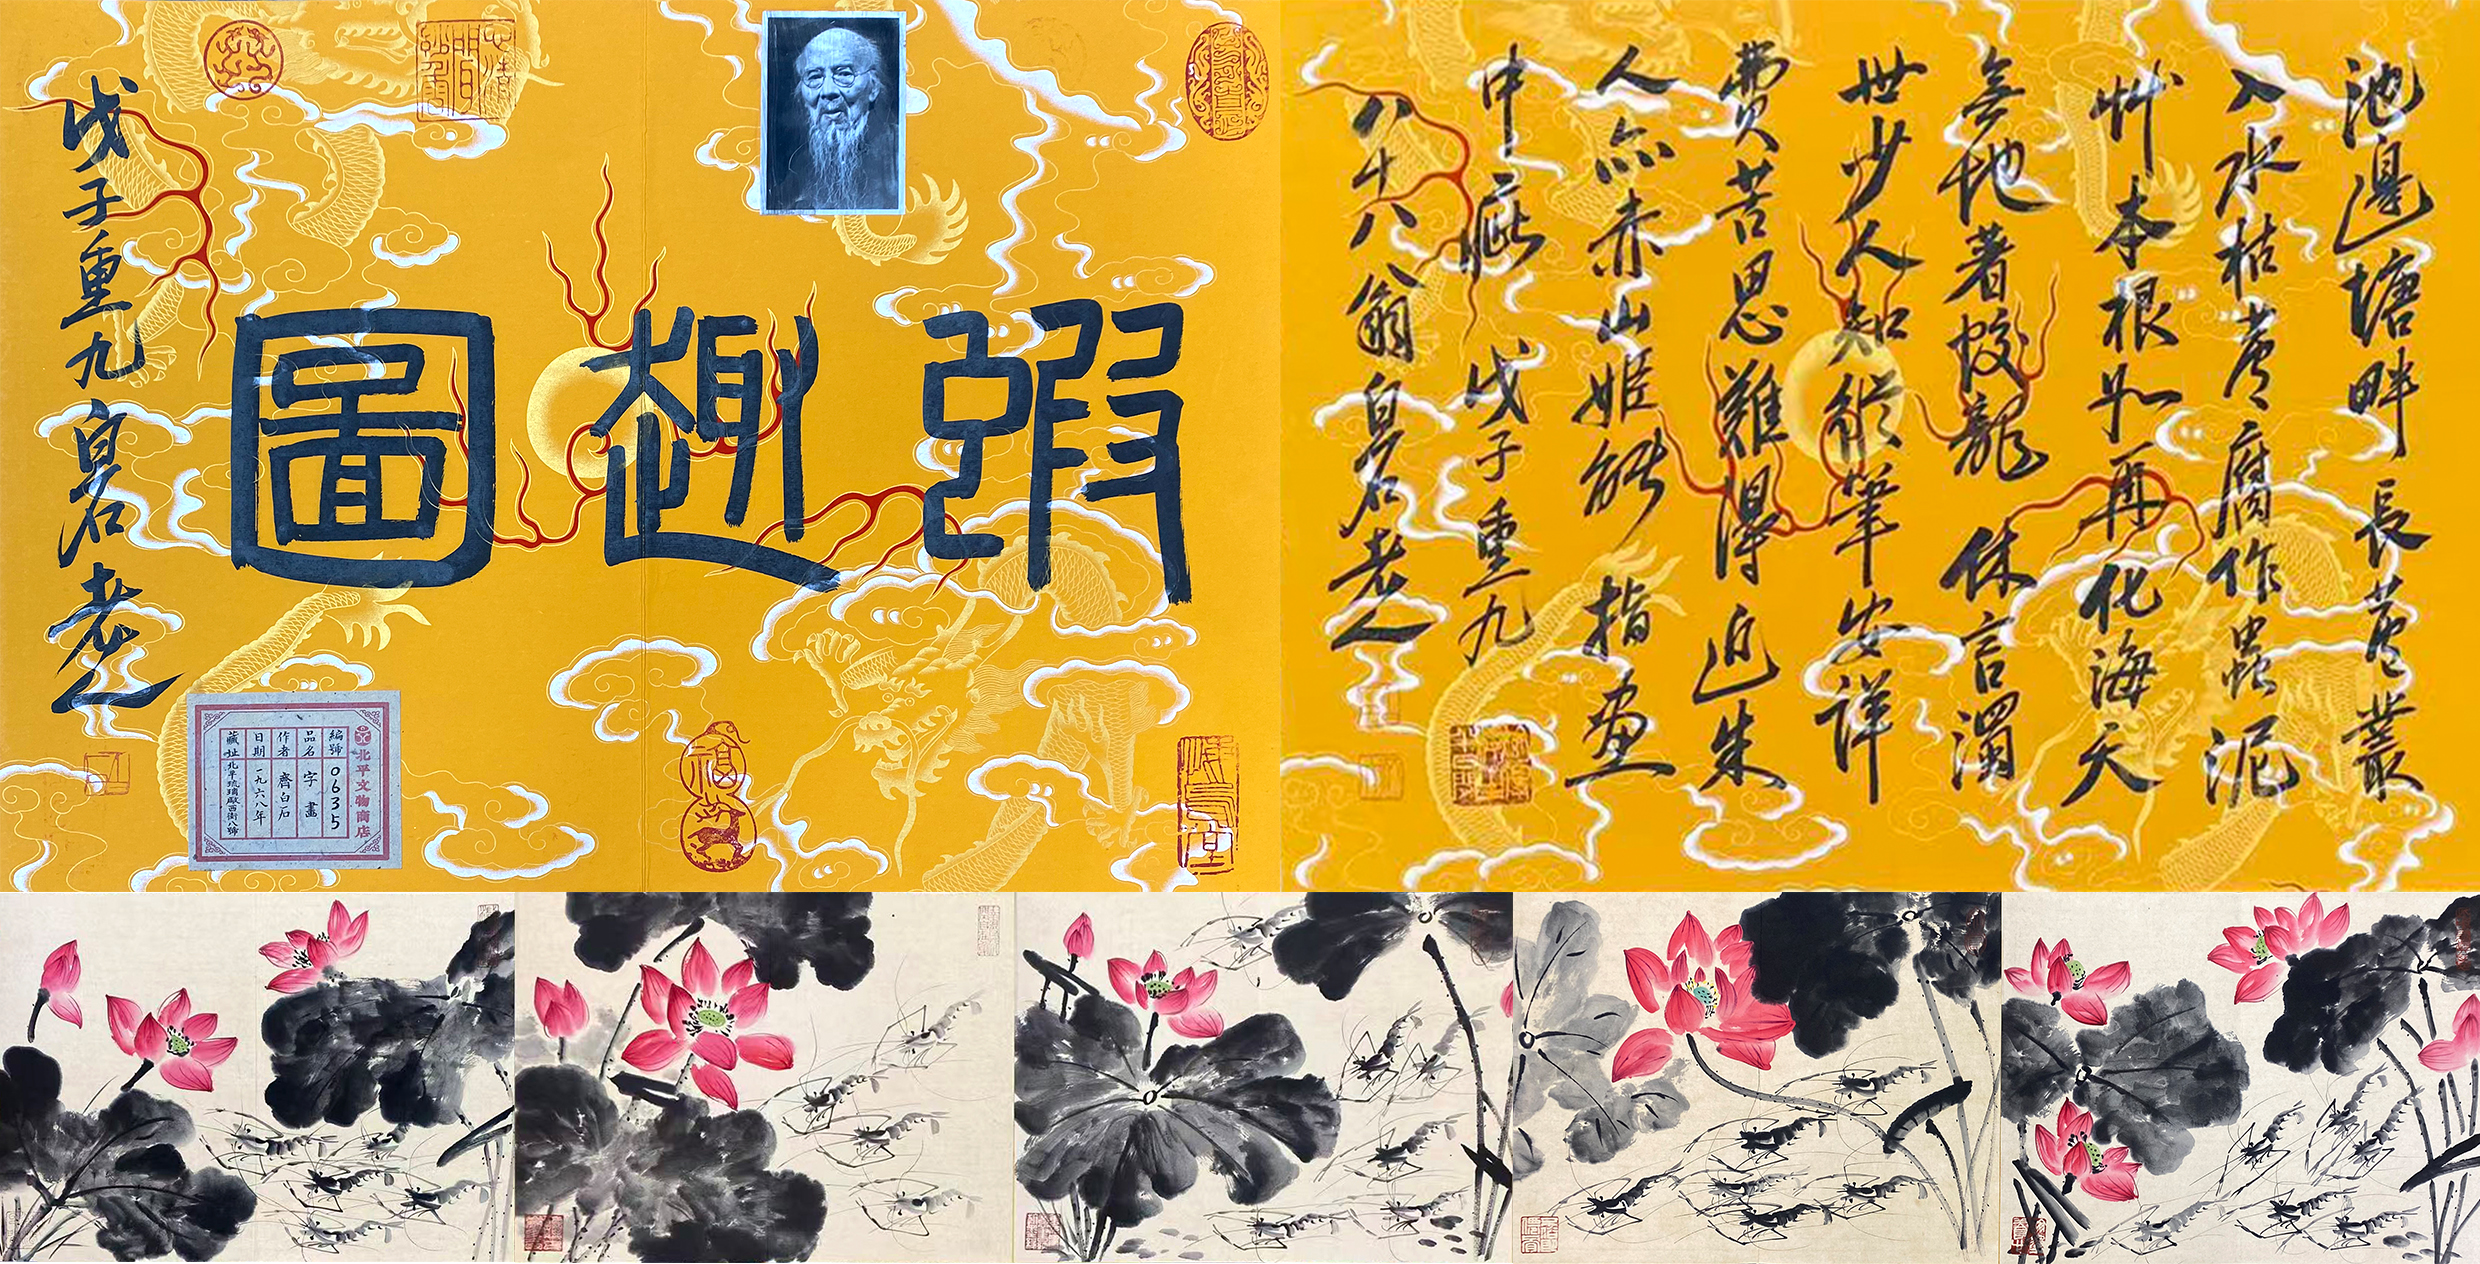 蝦趣圖
戊子重九白石老人
北平文物商店
編號 0635
品名 字畫
作者 齊白石
日期 一九六八年
藏址 北平琉璃廠西街八號
心清聞妙香
福
池邊塘畔長蘆叢
入水枯蘆腐作蟲泥
艸本根如再化海天
無地著蛟龍 休言濁
世少人知縱筆安詳
費苦思難得近朱
人亦赤山姬能指畫
中疵 戊子重九
八十八翁白石老人